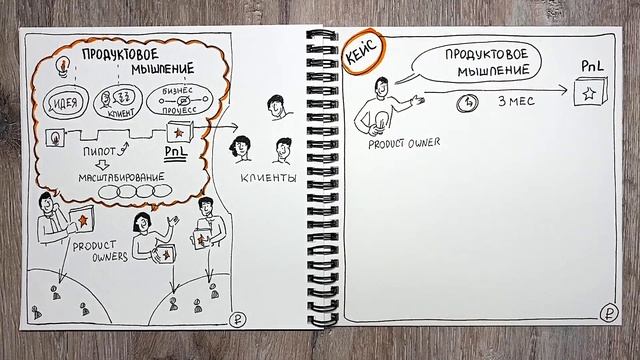 ПРОДУКТОВОЕ
МЫШЛЕНИЕ
ИДЕЯ
КЛИЕНТ
БИЗНЕС
ПРОЦЕСС
ПИЛОТ
PnL
МАСШТАБИРОВАНИЕ
КЛИЕНТЫ
PRODUCT
OWNERS
₽
КЕЙС
ПРОДУКТОВОЕ
МЫШЛЕНИЕ
PnL
3 МЕС
PRODUCT OWNER
₽